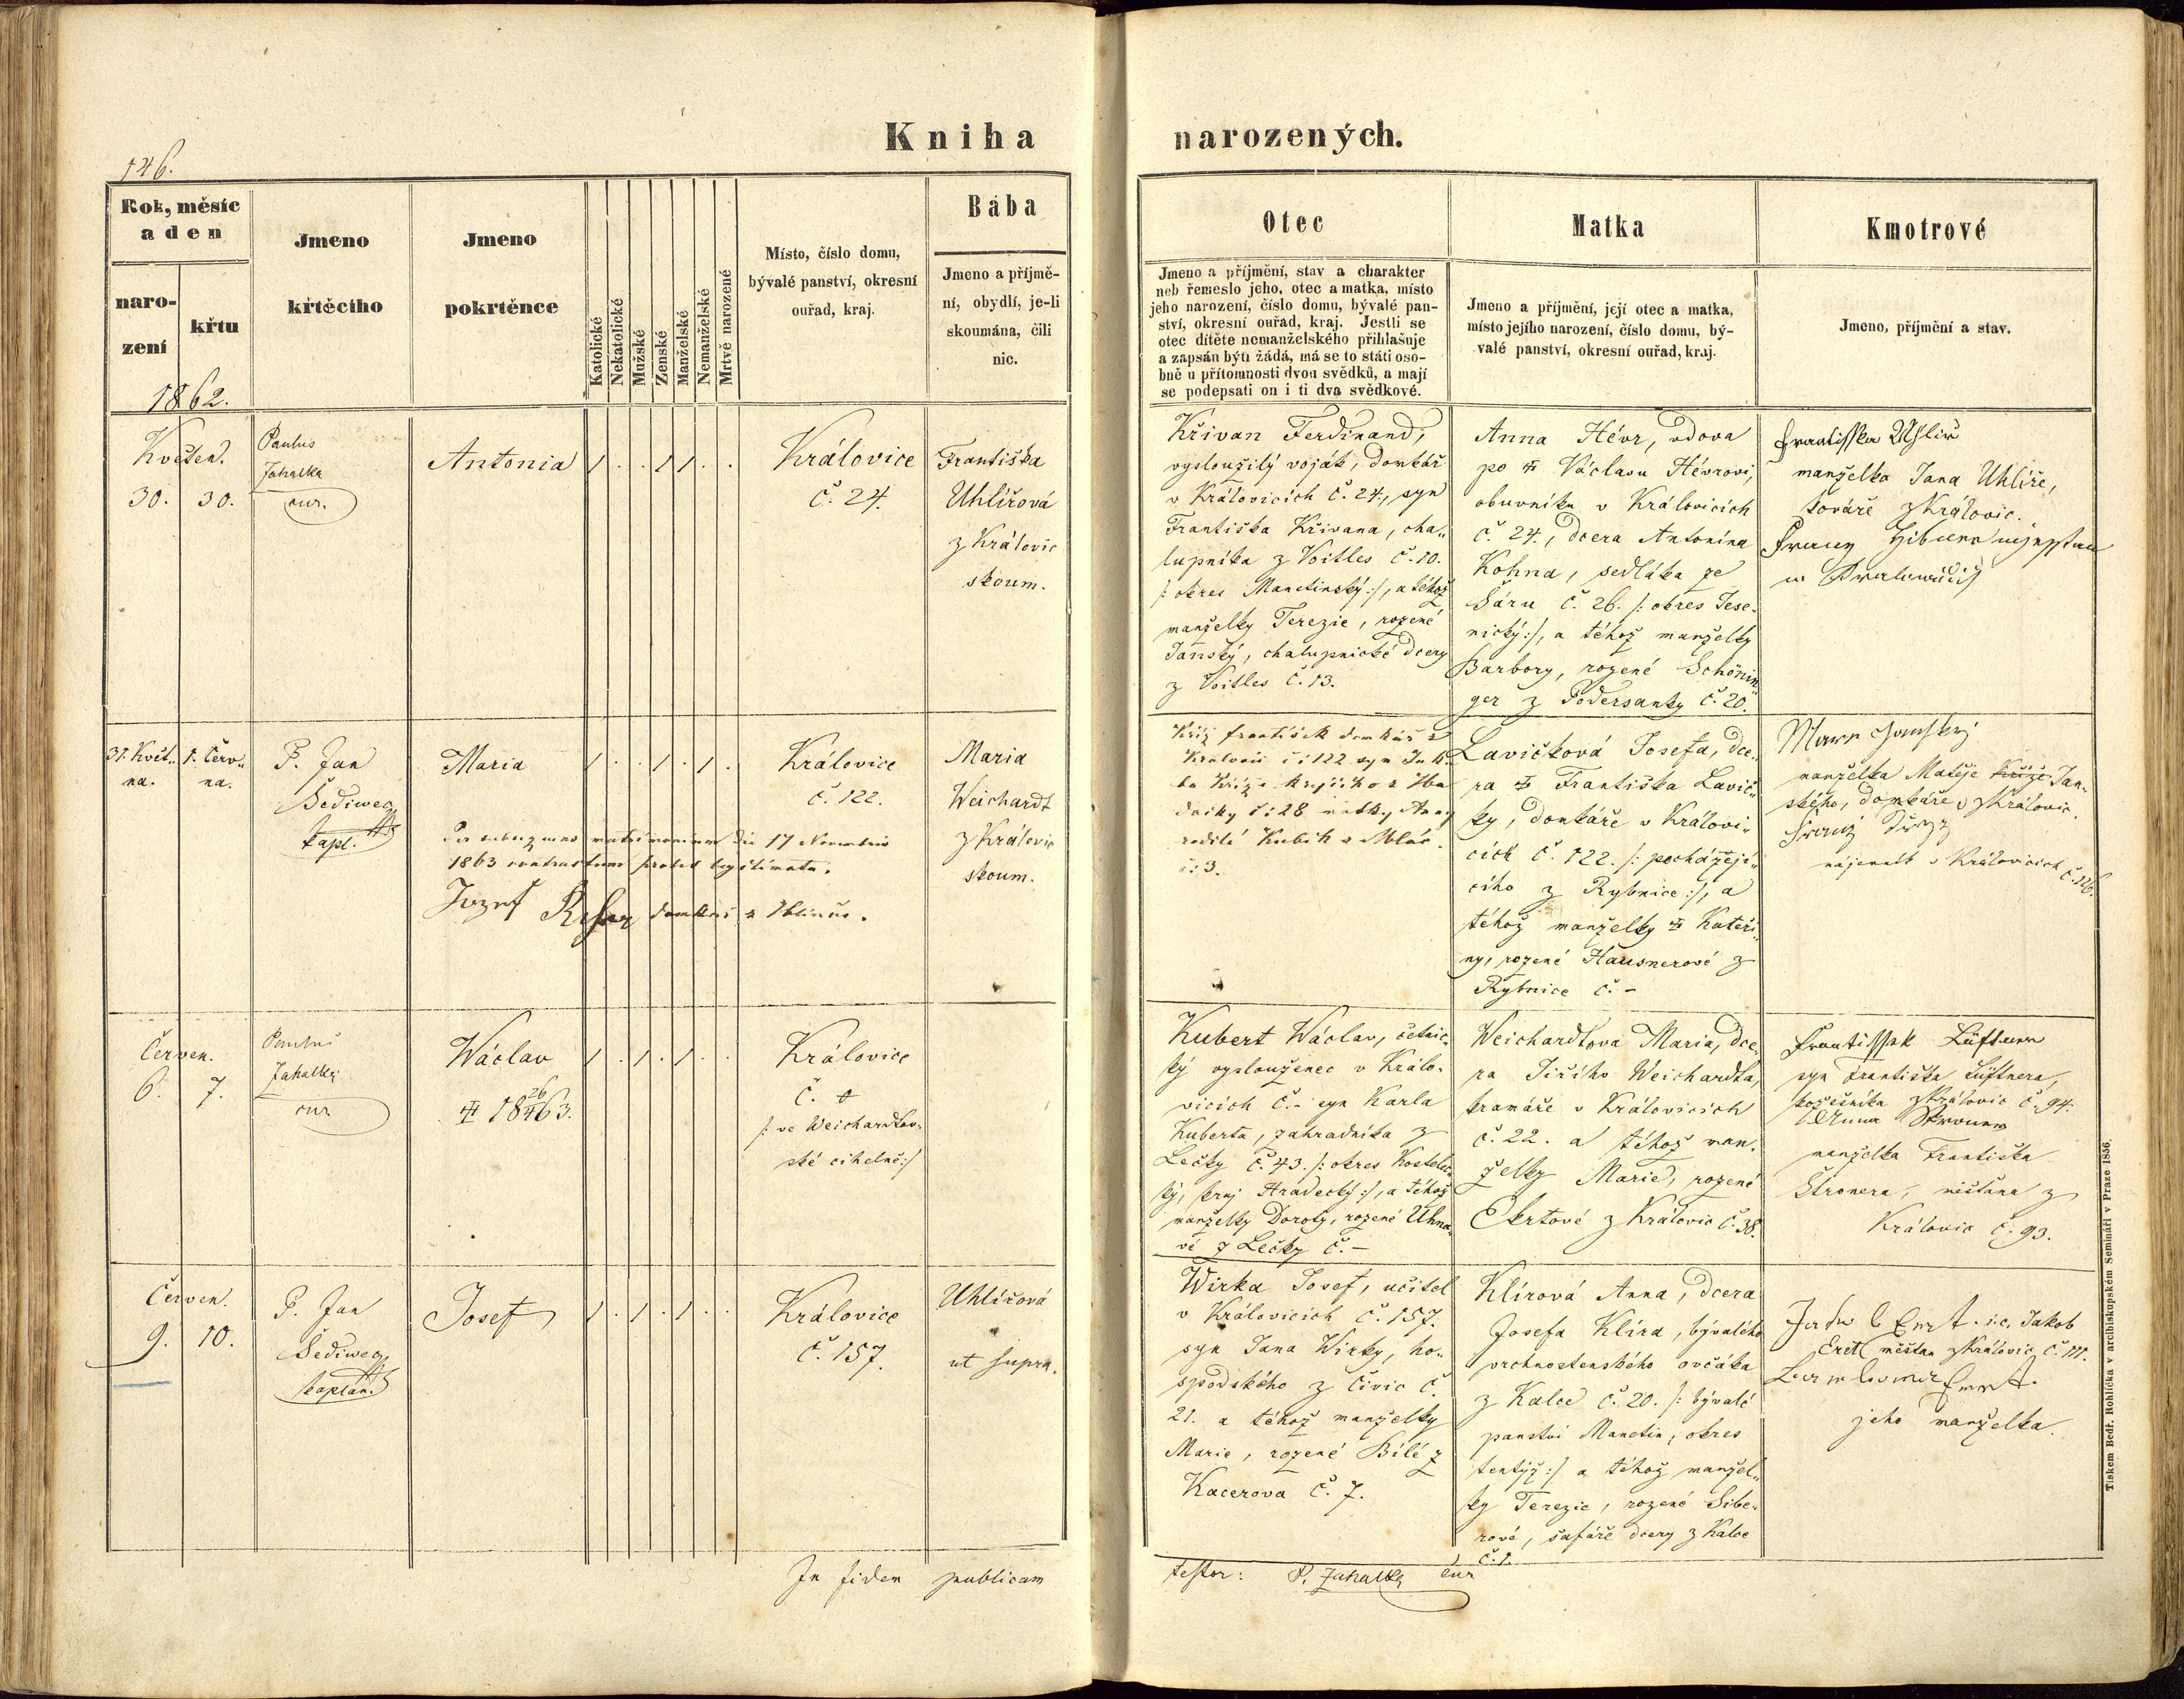 Kniha narozených.
146.
Rok, měsíc
a den
naro-
zení
křtu
1862.
Jmeno
křtěcího
Jmeno
pokrtěnce
Katolické
Nekatolické
Mužské
Ženské
Manželské
Nemanželské
Mrtvě narozené
Místo, číslo domu,
bývalé panství, okresní
ouřad, kraj.
Bába
Jmeno a příjmě-
ní, obydlí, je-li
skoumána, čili
nic.
Otec
Jmeno a příjmění, stav a charakter
neb řemeslo jeho, otec a matka, místo
jeho narození, číslo domu, bývalé pan-
ství, okresní ouřad, kraj. Jestli se
otec dítěte nemanželského přihlašuje
a zapsán býti žádá, má se to státi oso-
bně u přítomnosti dvou svědků, a mají
se podepsati on i ti dva svědkové.
Matka
Jmeno a příjmění, její otec a matka,
místo jejího narození, číslo domu, bý-
valé panství, okresní ouřad, kraj.
Kmotrové
Jmeno, příjmění a stav.
Květen.
30. 30.
Paulus
Jahalka
cur.
Antonia
Královice
č. 24.
Františka
Uhlířová
z Královic
skoum.
Křivan Ferdinand,
vysloužilý voják, domkář
v Královicích č. 24, syn
Františka Křivana, cha„
lupníka z Voitles č. 10.
/: okres Manetinský :/, a téhož
manželky Terezie, rozené
Janský, chalupnické dcery
z Voitles č. 13.
Anna Hévr, vdova
po Václavu Hévrovi,
obuvníku v Královicích
č. 24., dcera Antonína
Kohna, sedláka ze
Sáru č. 26. /: okres Jese-
nický :/, a téhož manželky
Barbory, rozené Schönin„
ger z Podersanky č. 20.
Frantisska Uhlir
manželka Jana Uhlíře,
kováře z Královic.
31. Květ„
na.
1. Červ„
na.
P. Jan
Šediwec
kapl.
Maria
Královice
č. 122.
Maria
Weichardt
z Královic
skoum.
Per subsequens matrimonium die 17 Novembris
1863 contractum proles legitimata.
Jozef
domkář z
Kříž František domkář z
Královic č: 122 syn
č: 28 matky Anny
č: 3.
Lavičková Josefa, dce„
ra Františka Lavič„
ky, domkáře v Královi„
cích č. 122. /: pocházejí„
cího z Rybnice :/, a
téhož manželky Kateři„
ny, rozené Hausnerové z
Rybnice č. –
manželka Matěje Kříže Jan„
ského, domkáře z Královic.
nájemník v Královicích č. 126.
Červen.
6. 7.
Paulus
Jahalka
cur
Wáclav
Královice
č.
/: ve Weichardtov„
ské cihelně :/
Kubert Wáclav, četnic„
ký vyslouženec v Králo„
vicích č. – syn Karla
Kuberta, zahradníka z
Lečky č. 43. /: okres Kostelec„
ký, kraj Hradecký :/, a téhož
manželky Doroty, rozené Uhna„
vé z Lečky č. –
Weichardtova Maria, dce„
ra Jiřího Weichardta,
kramáře v Královicích
č. 22. a téhož man„
želky Marie, rozené
Ekrtové z Královic č. 38.
Frantissek Lüftner
syn Františka Lüftnera,
kožešníka z Královic č. 94.
Anna
manželka Františka
Štronera, měšťana z
Královic č. 93.
Červen.
9. 10.
P. Jan
Šediwec
kaplan.
Josef
Královice
č. 157.
Uhlířová
ut supra.
Wirka Josef, učitel
v Královicích č. 157.
syn Jana Wirky, ho„
spodského z Čivic č.
21. a téhož manželky
Marie, rozené Bílé z
Kacerova č. 7.
Klírová Anna, dcera
Josefa Klíra, bývalého
vrchnostenského ovčáka
z Kalce č. 20. /: bývalé
panství Manetin, okres
tentýž :/ a téhož manžel„
ky Terezie, rozené Sibe„
rové, šafáře dcery z Kalce
č. 1.
i.e. Jakob
Eret měšťan z Královic č. 111.
jeho manželka.
In fidem publicam
testor: P. Jahalka cur
Tiskem Bedř. Rohlíčka v arcibiskupském Semináři v Praze 1856.